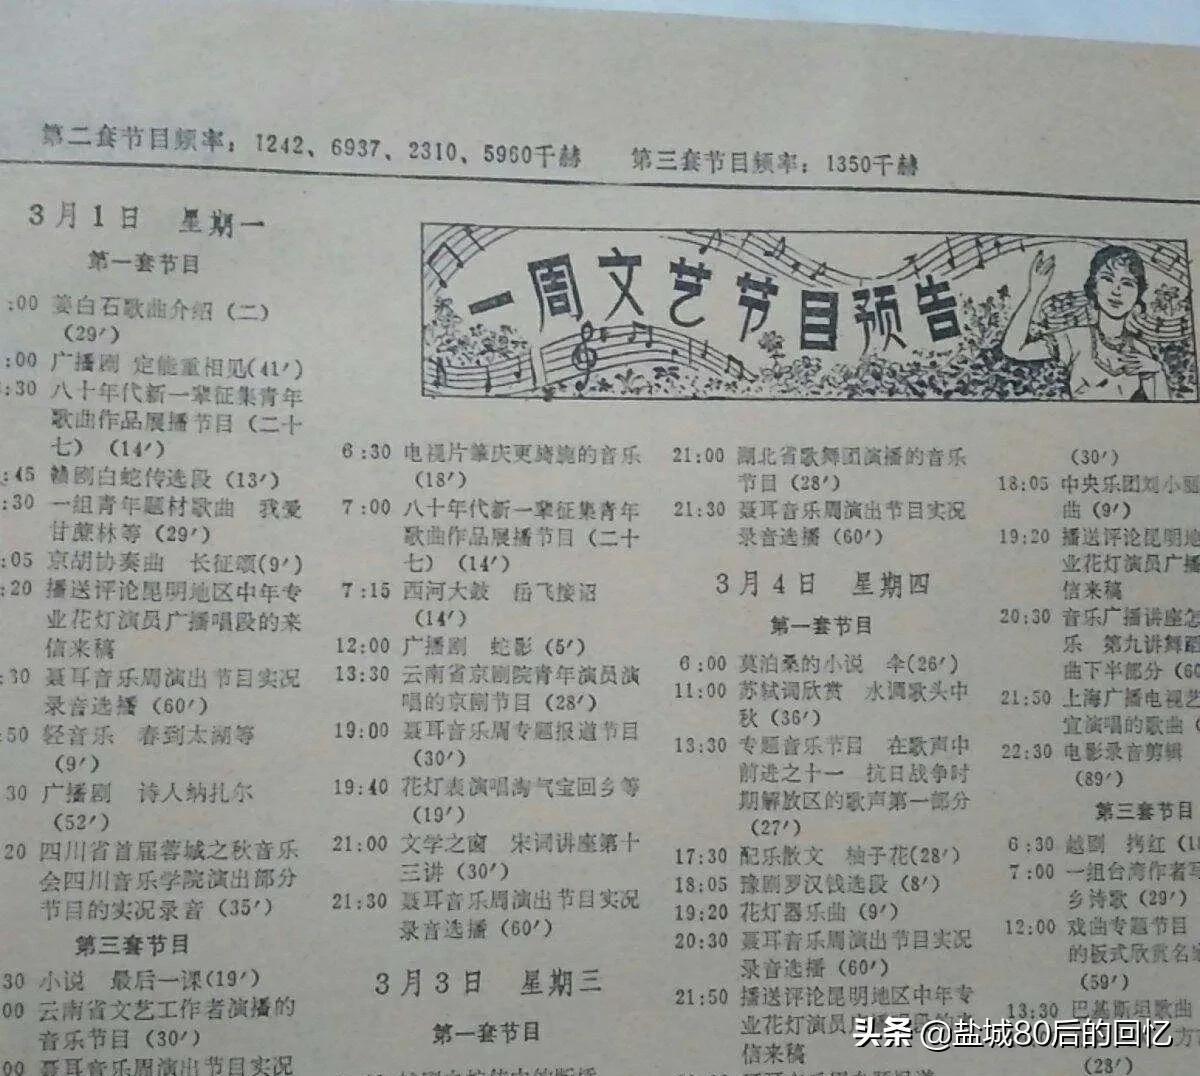 第二套节目频率：1242、6937、2310、5960千赫 第三套节目频率：1350千赫
3月1日 星期一
第一套节目
:00 姜白石歌曲介绍（二）
（29′）
:00 广播剧 定能重相见(41′)
:30 八十年代新一辈征集青年
歌曲作品展播节目（二十
七）（14′）
:45 赣剧白蛇传选段（13′）
:30 一组青年题材歌曲 我爱
甘蔗林等（29′）
:05 京胡协奏曲 长征颂(9′)
:20 播送评论昆明地区中年专
业花灯演员广播唱段的来
信来稿
:30 聂耳音乐周演出节目实况
录音选播（60′）
:50 轻音乐 春到太湖等
（9′）
30 广播剧 诗人纳扎尔
（52′）
20 四川省首届蓉城之秋音乐
会四川音乐学院演出部分
节目的实况录音（35′）
第三套节目
30 小说 最后一课(19′)
00 云南省文艺工作者演播的
音乐节目（30′）
00 聂耳音乐周演出节目实况
一周文艺节目预告
6:30 电视片肇庆更旖旎的音乐
（18′）
7:00 八十年代新一辈征集青年
歌曲作品展播节目（二十
七）（14′）
7:15 西河大鼓 岳飞接诏
（14′）
12:00 广播剧 蛇影（5′）
13:30 云南省京剧院青年演员演
唱的京剧节目（28′）
19:00 聂耳音乐周专题报道节目
（30′）
19:40 花灯表演唱淘气宝回乡等
（19′）
21:00 文学之窗 宋词讲座第十
三讲（30′）
21:30 聂耳音乐周演出节目实况
录音选播（60′）
3月3日 星期三
第一套节目
21:00 湖北省歌舞团演播的音乐
节目（28′）
21:30 聂耳音乐周演出节目实况
录音选播（60′）
3月4日 星期四
第一套节目
6:00 莫泊桑的小说 伞(26′)
11:00 苏轼词欣赏 水调歌头中
秋（36′）
13:30 专题音乐节目 在歌声中
前进之十一 抗日战争时
期解放区的歌声第一部分
（27′）
17:30 配乐散文 柚子花(28′)
18:05 豫剧罗汉钱选段（8′）
19:20 花灯器乐曲（9′）
20:30 聂耳音乐周演出节目实况
录音选播（60′）
21:50 播送评论昆明地区中年专
业花灯演员广播唱段的来
信来稿
（30′）
18:05 中央乐团刘小丽
曲（9′）
19:20 播送评论昆明地
业花灯演员广播
信来稿
20:30 音乐广播讲座怎
乐 第九讲舞蹈
曲下半部分（60
21:50 上海广播电视艺
宣演唱的歌曲（
22:30 电影录音剪辑
（89′）
第三套节目
6:30 越剧 拷红（18
7:00 一组台湾作者写
乡诗歌（29′）
12:00 戏曲专题节目
的板式欣赏名家
（59′）
13:30 巴基斯坦歌曲
（28′）
头条 @盐城80后的回忆